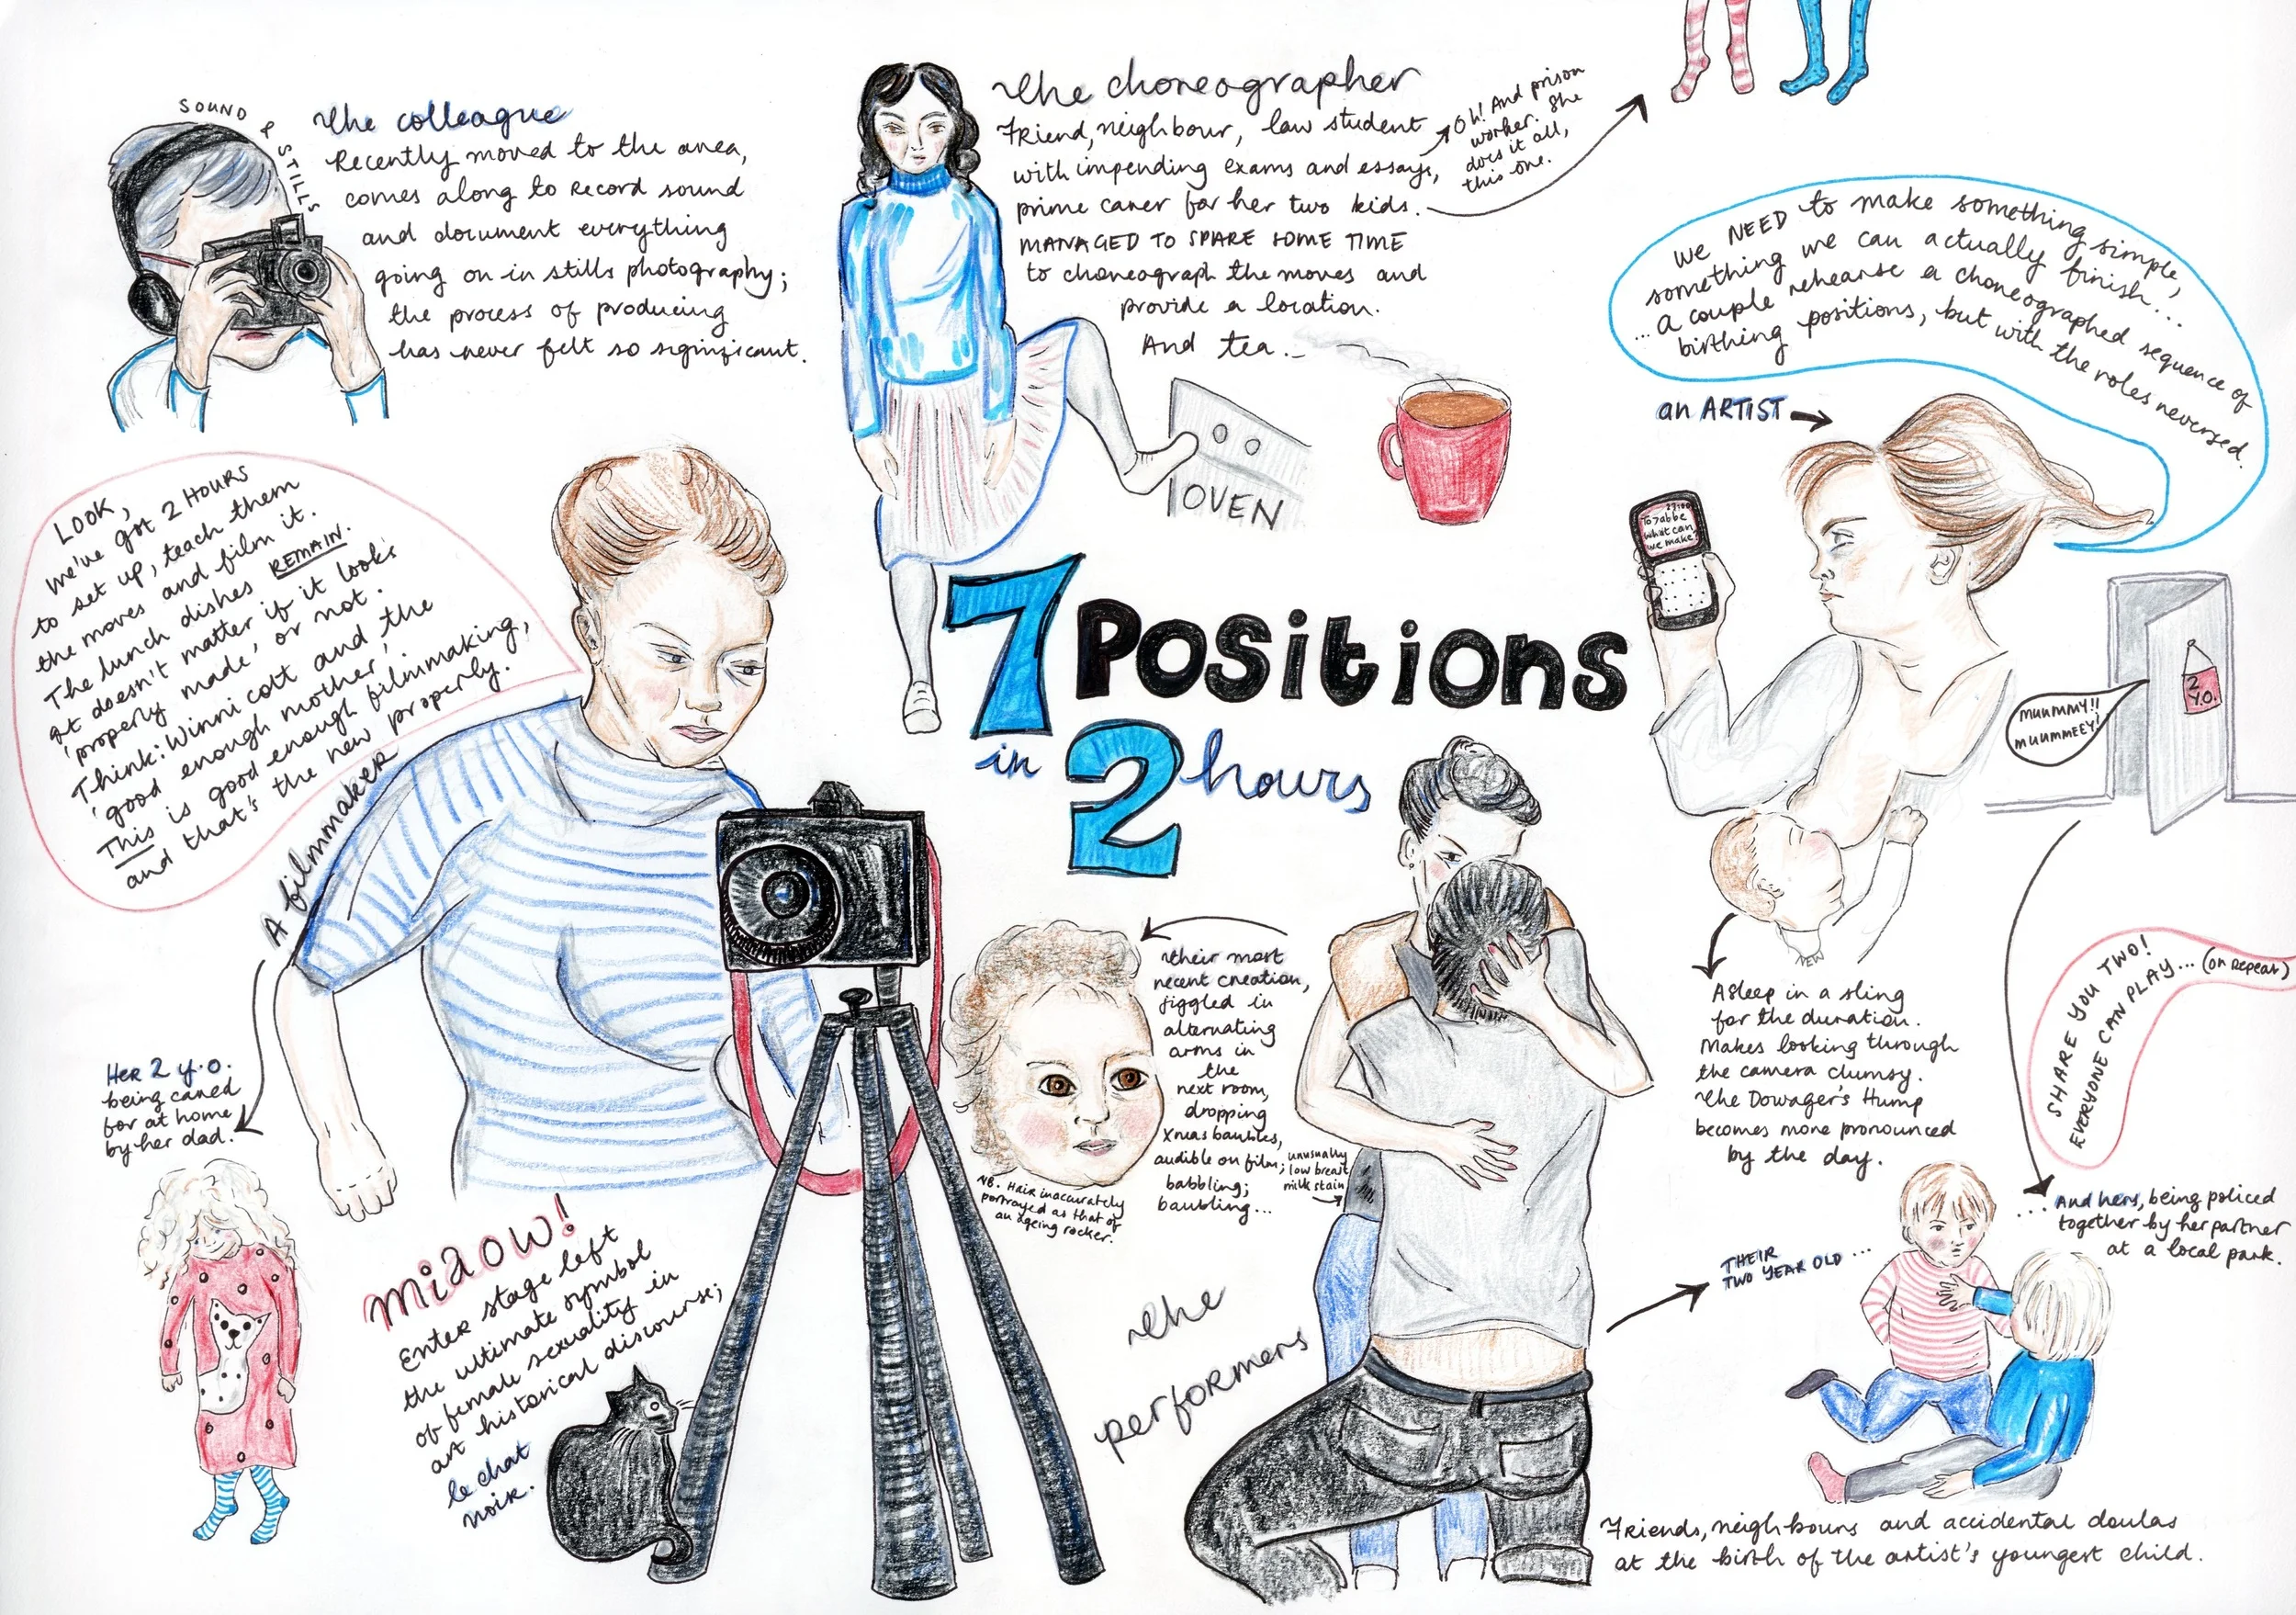 SOUND & STILLS
The colleague
Recently moved to the area,
comes along to record sound
and document everything
going on in stills photography;
the process of producing
has never felt so significant.
The choreographer
Friend, neighbour, law student
with impending exams and essays,
prime carer for her two kids.
MANAGED TO SPARE SOME TIME
to choreograph the moves and
provide a location.
And tea.
Oh! And prison
worker. She
does it all,
this one.
OVEN
We NEED to make something simple,
something we can actually finish...
...a couple rehearse a choreographed sequence of
birthing positions, but with the roles reversed.
an ARTIST
To
what can
we make?
MUUMMY!!
MUUMMEEY!
2
Y.O.
LOOK,
we've got 2 HOURS
to set up, teach them
the moves and film it.
The lunch dishes REMAIN.
It doesn't matter if it looks
'properly made', or not.
Think: Winnicott and the
'good enough mother',
This is good enough filmmaking,
and that's the new properly.
A filmmaker
7 Positions
in 2 hours
Her 2 y.o.
being cared
for at home
by her dad.
miaow!
Enter stage left
the ultimate symbol
of female sexuality in
art historical discourse;
le chat
noir.
Their most
recent creation,
jiggled in
alternating
arms in
the
next room,
dropping
Xmas baubles,
audible on film;
babbling;
baubling...
NB. Hair inaccurately
portrayed as that of
an ageing rocker.
unusually
low breast
milk stain
The
performers
Asleep in a sling
for the duration.
Makes looking through
the camera clumsy.
The Dowager's Hump
becomes more pronounced
by the day.
SHARE YOU TWO!
EVERYONE CAN PLAY... (on repeat)
THEIR
TWO YEAR OLD ...
... And hers, being policed
together by her partner
at a local park.
Friends, neighbours and accidental doulas
at the birth of the artist's youngest child.